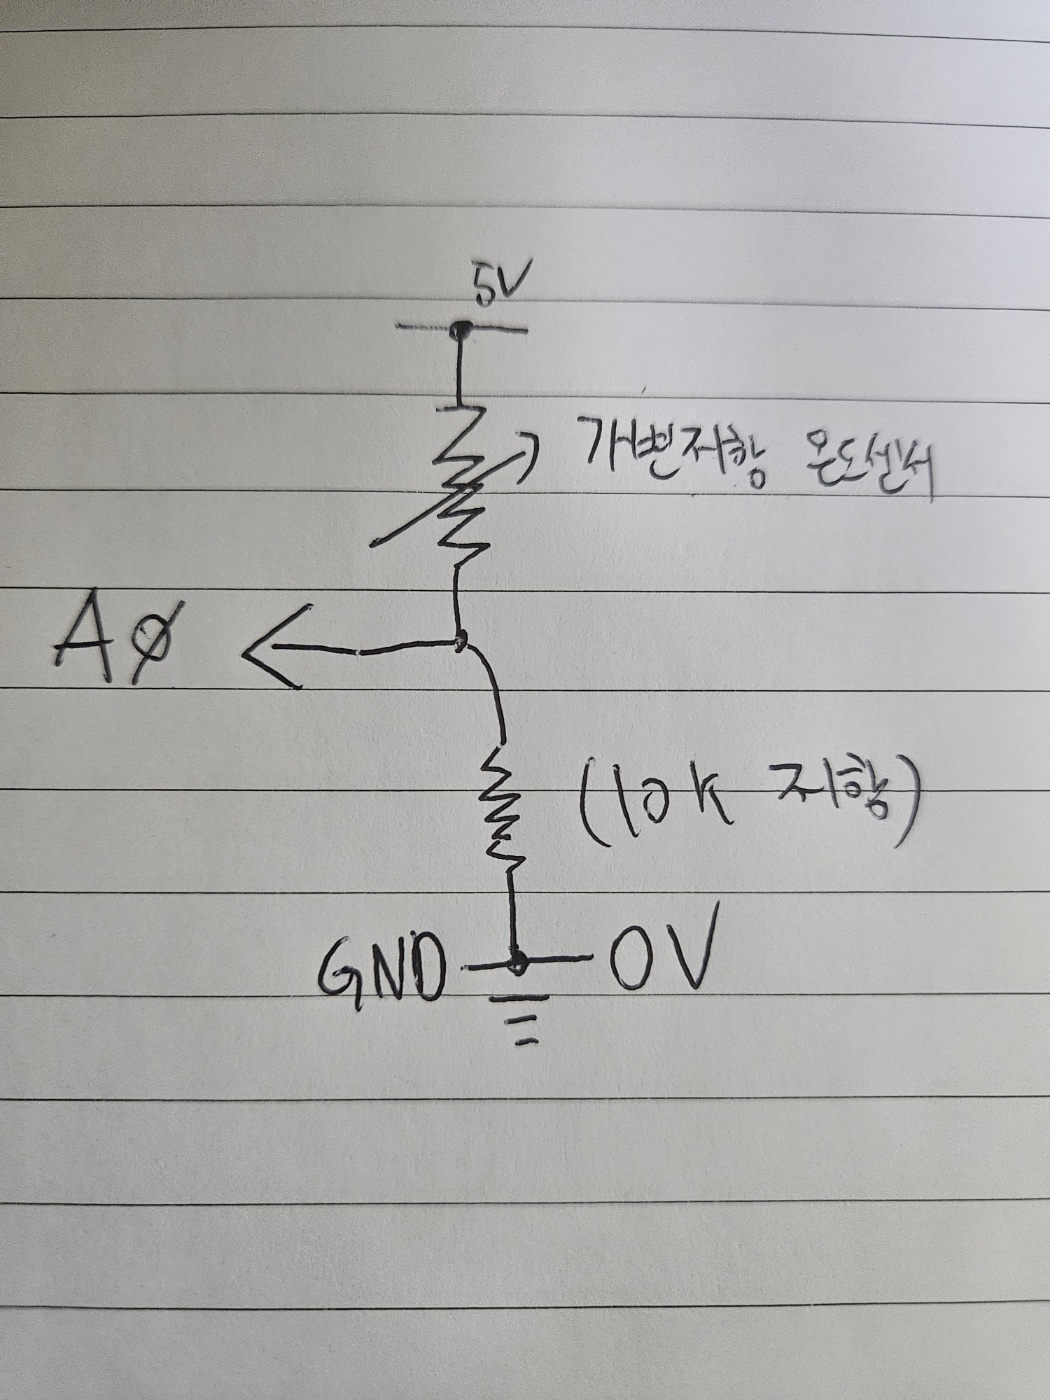 5V
가변저항 온도센서
AØ
(10K 저항)
GND 0V